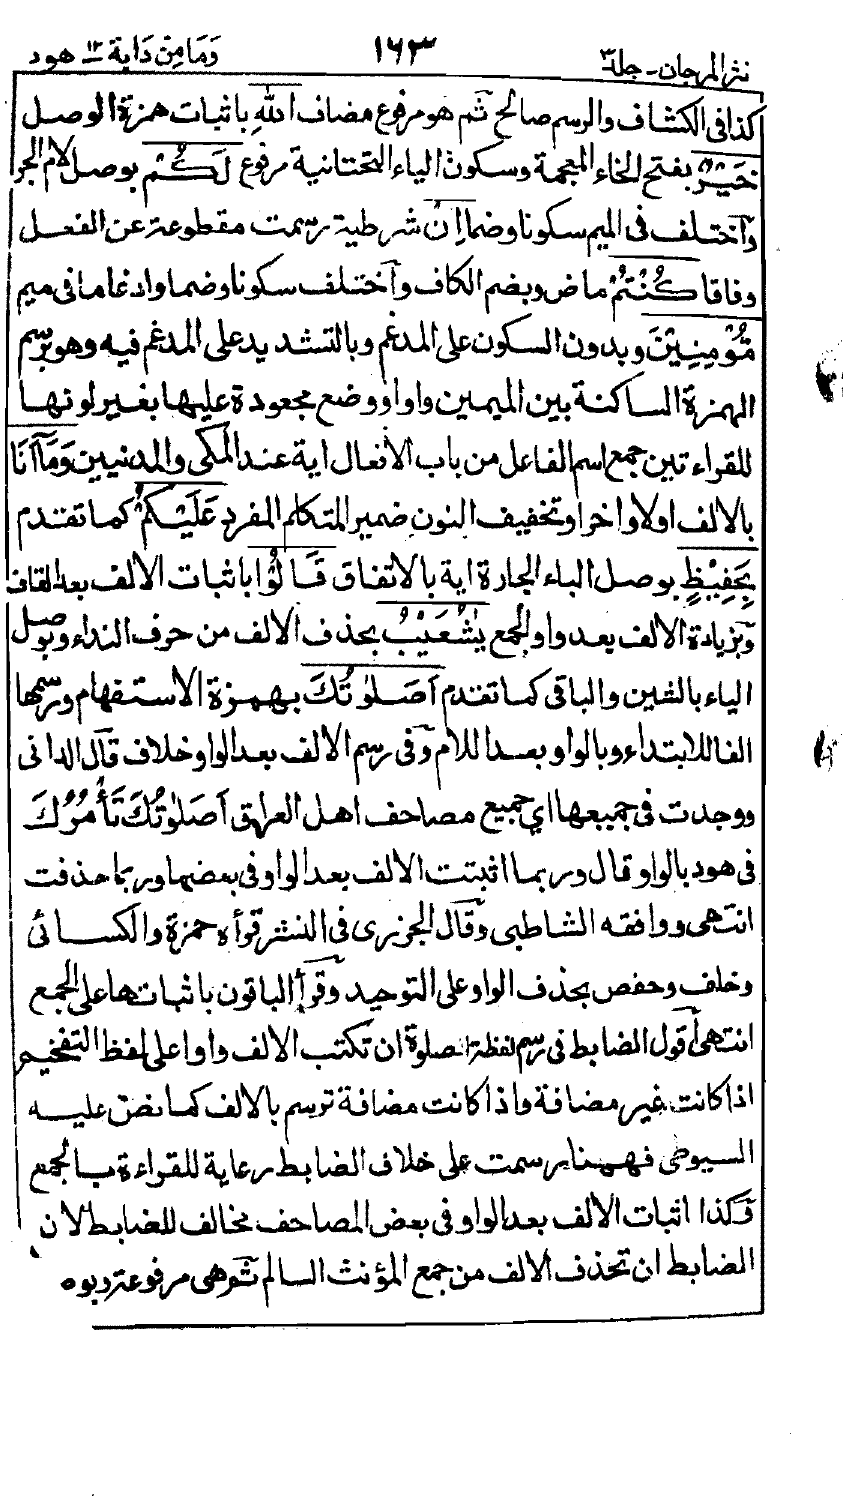 نثر المرجان - جلد ٣ ١٦٣ وَمَا مِن دَابة ١٢ هود
كذا فی الكشاف والرسم صالح ثم هو مرفوع مضاف اللهِ باثبات همزة الوصل
خَيْرٌ بفتح الخاء المعجمة وسكون الياء التحتانية مرفوع لَكُمْ بوصل لام الجر
وآختلف فی الميم سكونا وضما اِنْ شرطية رسمت مقطوعة عن الفعل
وفاقا كُنْتُمْ ماض وبضم الكاف وآختلف سكونا وضما وادغاما فی ميم
مُّؤْمِنِيْنَ وبدون السكون علی المدغم وبالتشديد علی المدغم فيه وهو برسم
الهمزة الساكنة بين الميمين واوا ووضع مجعودة عليها بغير لونها
للقراءتين جمع اسم الفاعل من باب الافعال اية عند المكی والمدنيين وَمَآ اَنَا
بالالف اولا واخرا وتخفيف النون ضمير المتكلم المفرد عَلَيْكُمْ كما تقدم
بِحَفِيْظٍ بوصل الباء الجارة اية بالاتفاق قَالُوْا باثبات الالف بعد القاف
وبزيادة الالف بعد واو الجمع يٰشُعَيْبُ بحذف الالف من حرف النداء وبوصل
الياء بالشين والباقی كما تقدم اَصَلٰوتُكَ بهمزة الاستفهام ورسمها
الفا للابتداء وبالواو بعد اللام وفی رسم الالف بعد الواو خلاف قال الدانی
ووجدت فی جميعها ای جميع مصاحف اهل العراق اَصَلٰوتُكَ تَأْمُرُكَ
فی هود بالواو قال وربما اثبتت الالف بعد الواو فی بعضها وربما حذفت
انتهی ووافقه الشاطبی وقال الجزری فی النشر قرأه حمزة والكسائی
وخلف وحفص بحذف الواو علی التوحيد وقرأ الباقون باثباتها علی الجمع
انتهی أقول الضابط فی رسم لفظة الصلوة ان تكتب الالف واوا علی لفظ التفخيم
اذا كانت غير مضافة واذا كانت مضافة ترسم بالالف كما نص عليه
السيوطی فههنا رسمت علی خلاف الضابط رعاية للقراءة بالجمع
وكذا اثبات الالف بعد الواو فی بعض المصاحف مخالف للضابط لان
الضابط ان تحذف الالف من جمع المؤنث السالم ثم هی مرفوعة وبوه